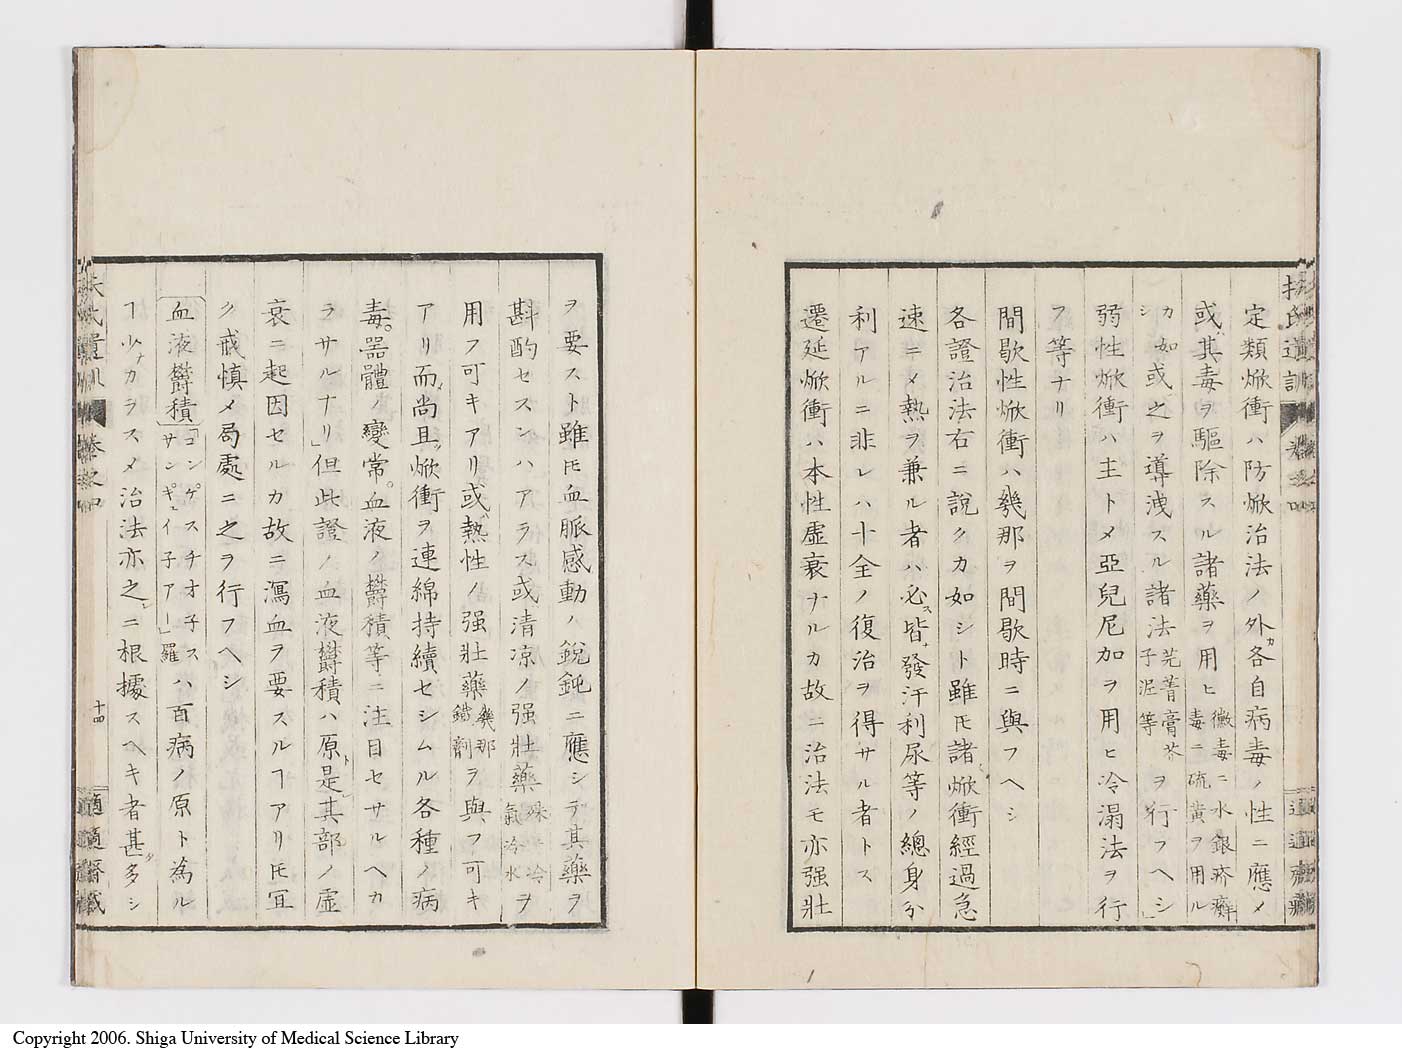 扶氏遺訓 卷之四
定類焮衝ハ防焮治法ノ外各自病毒ノ性ニ應メ
或其毒ヲ驅除スル諸藥ヲ用ヒ黴毒ニ水銀疥癬毒ニ硫黄ヲ用ルカ如シ
或之ヲ導洩スル諸法芫菁膏芥子泥等ヲ行フヘシ」
弱性焮衝ハ主トメ亞兒尼加ヲ用ヒ冷溻法ヲ行
フ等ナリ
間歇性焮衝ハ幾那ヲ間歇時ニ與フヘシ
各證治法右ニ說クカ如シト雖𪜈諸焮衝經過急
速ニメ熱ヲ兼ル者ハ必ス皆發汗利尿等ノ總身分
利アルニ非レハ十全ノ復治ヲ得サル者トス
遷延焮衝ハ本性虛衰ナルカ故ニ治法モ亦强壯
ヲ要スト雖𪜈血脈感動ノ銳鈍ニ應シテ其藥ヲ
斟酌セスンハアラス或清凉ノ强壯藥冷水ヲ
用フ可キアリ或熱性ノ强壯藥幾那鐵劑ヲ與フ可キ
アリ而尚且焮衝ヲ連綿持續セシムル各種ノ病
毒。器體ノ變常。血液ノ欝積等ニ注目セサルヘカ
ラサルナリ」但此證ノ血液欝積ハ原是其部ノ虛
衰ニ起因セルカ故ニ瀉血ヲ要スルヿアリ𪜈宜
ク戒慎メ局處ニ之ヲ行フヘシ
血液欝積「コンゲスチオ子スサンギュイ子アー」羅ハ百病ノ原ト為ル
ヿ少ナカラスメ治法亦之ニ根據スヘキ者甚タ多シ
扶氏遺訓 卷之四 十四 適適齋藏
Copyright 2006. Shiga University of Medical Science Library